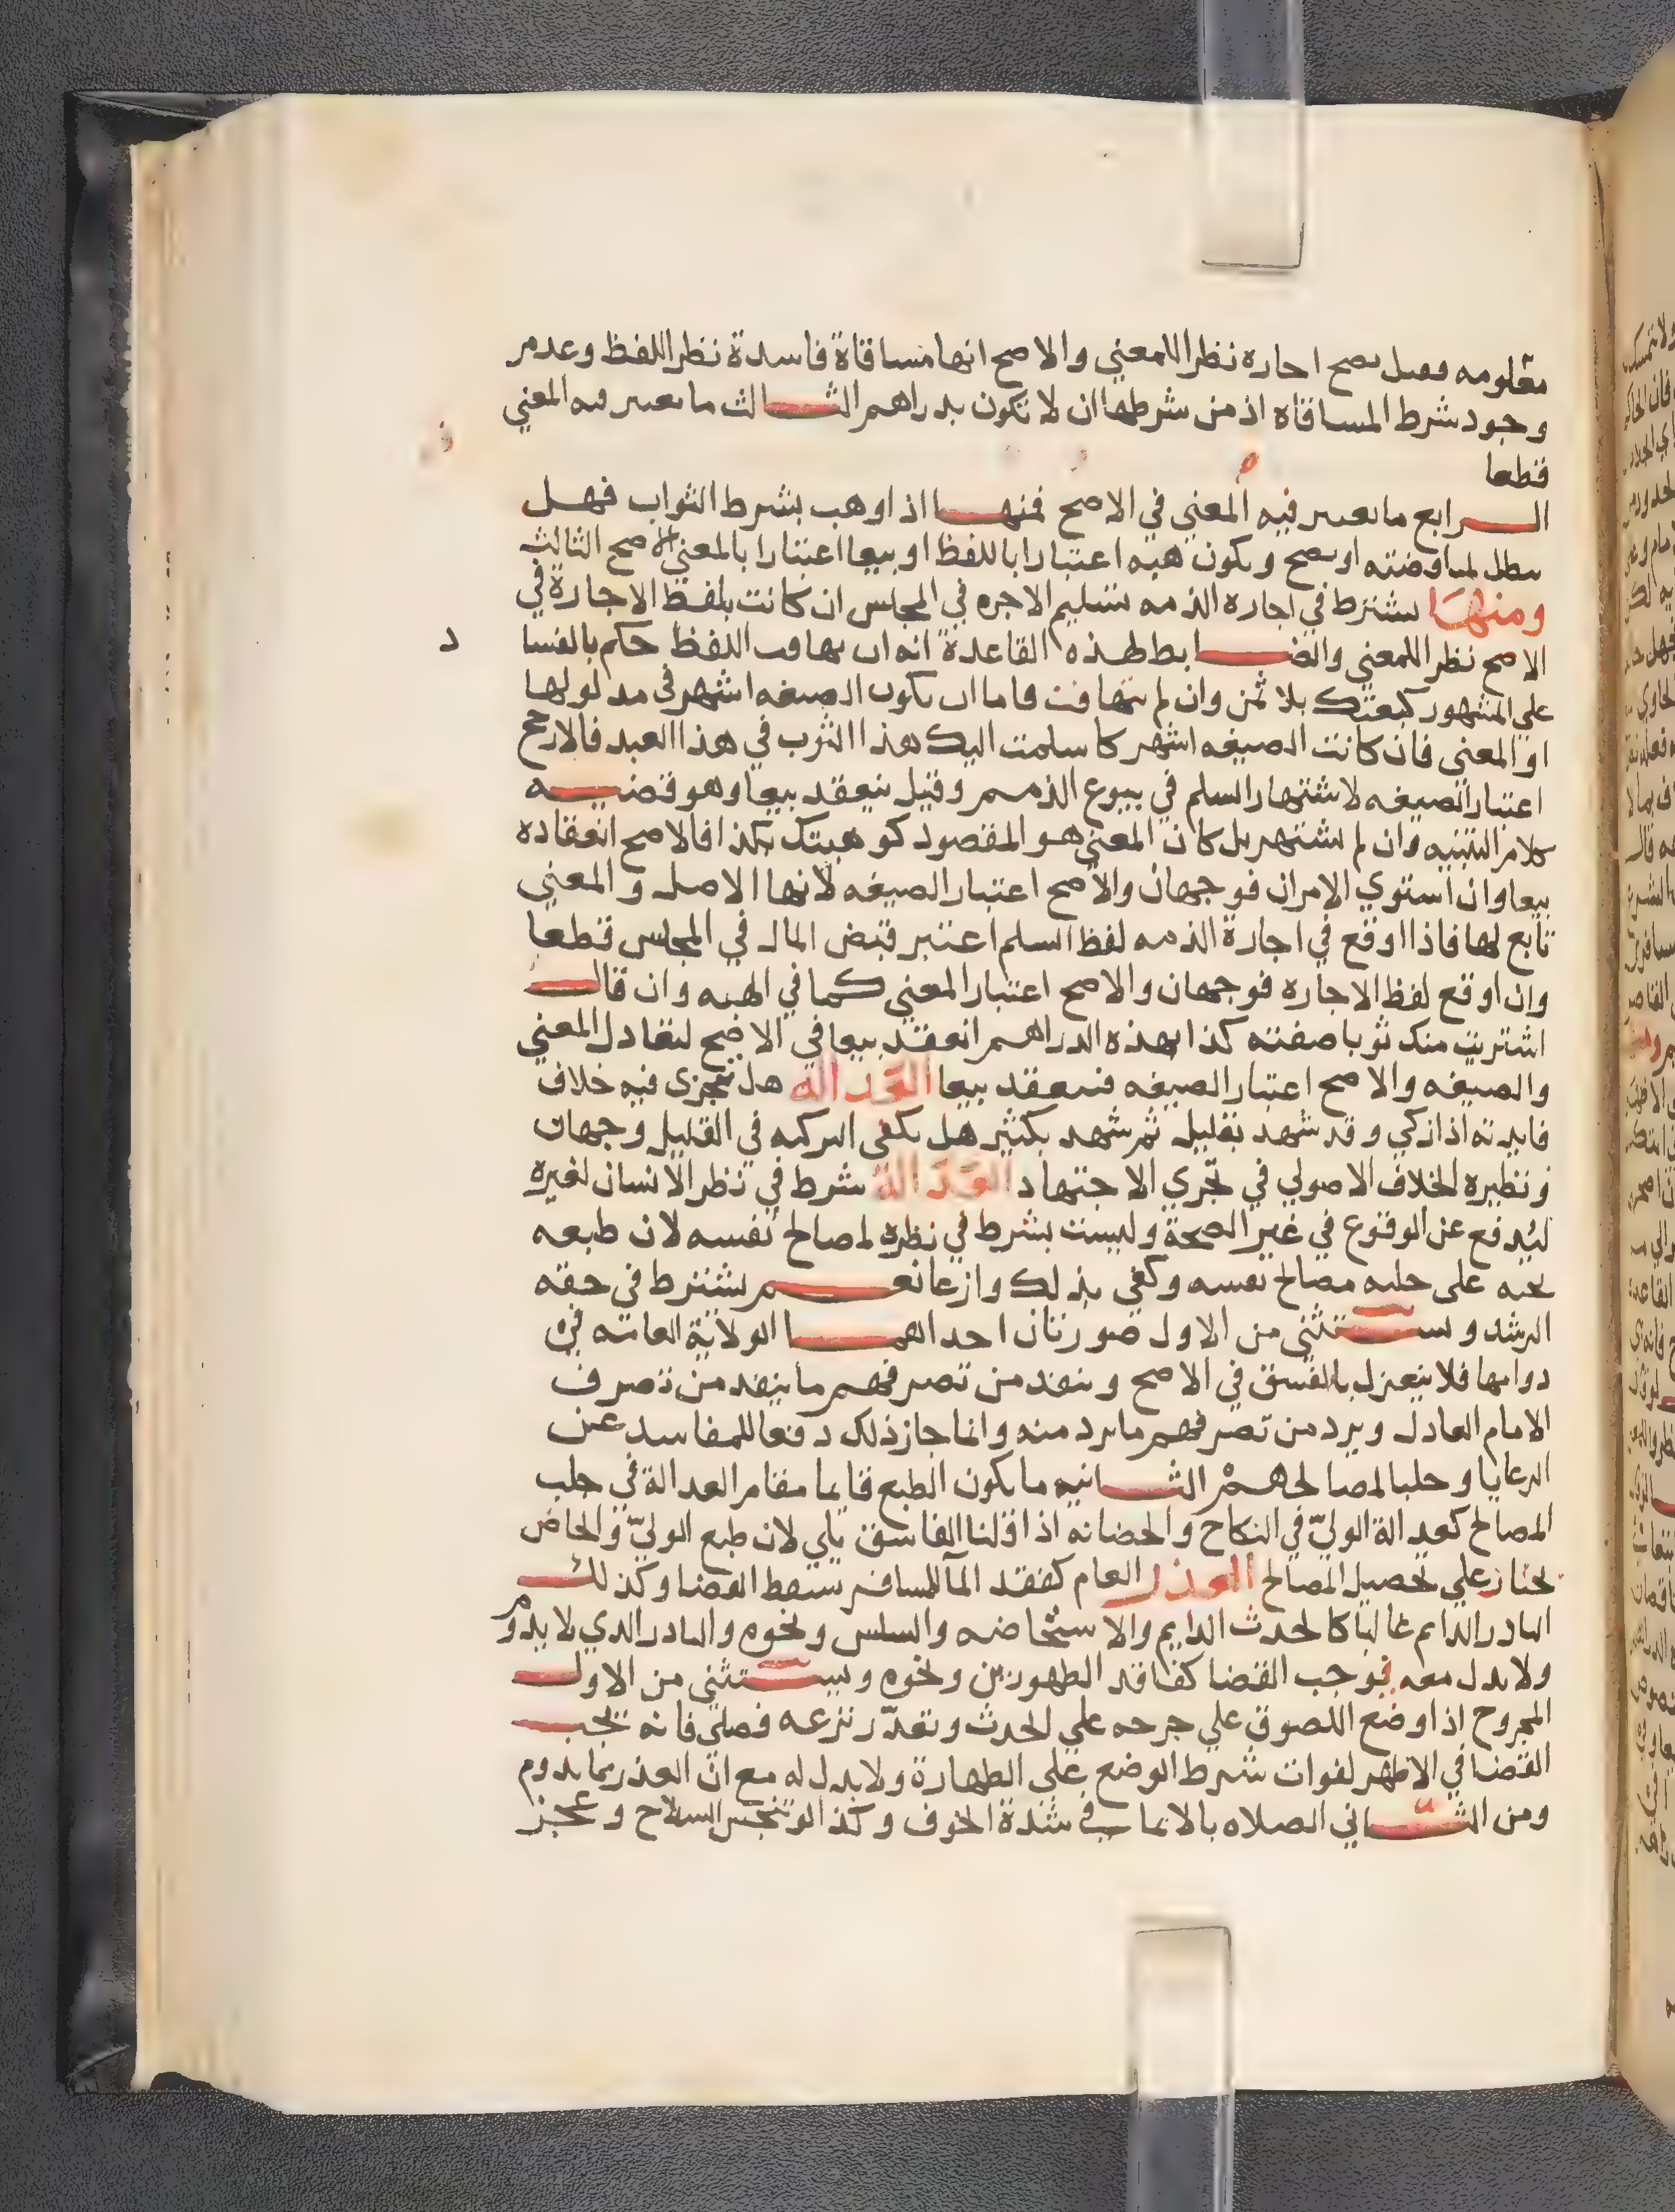 معلومه فقيل يصح اجاره نظرا للمعني والاصح انها مساقاة فاسدة نظرا للفظ وعدم
وجود شرط المساقاه اذ من شرطها ان لا تكون بدراهم الثالث ما يعتبر فيه المعني
قطعا
الرابع ما يعتبر فيه المعني في الاصح فمنها اذا وهب بشرط الثواب فهل
يبطل لمناقضته او يصح ويكون هبه اعتبارا باللفظ او بيعا اعتبارا بالمعني الاصح الثالث
ومنها يشترط في اجاره الذمه تسليم الاجره في المجلس ان كانت بلفظ الاجارة في
الاصح نظرا للمعني والضابط لهذه القاعدة انه ان تهافت اللفظ حكم بالفسا د
علي المشهور كبعتك بلا ثمن وان لم يتهافت فاما ان تكون الصيغه اشهر في مدلولها
او المعني فان كانت الصيغه اشهر كاسلمت اليك هذا الثوب في هذا العبد فالارجح
اعتبار الصيغه لاشتهار السلم في بيوع الذمم وقيل ينعقد بيعا وهو قضيه
كلام التنبيه وان لم يشتهر بل كان المعني هو المقصود كوهبتك بكذا فالاصح انعقاده
بيعا وان استوي الامران فوجهان والاصح اعتبار الصيغه لانها الاصل والمعني
تابع لها فاذا اوقع في اجارة الذمه لفظ السلم اعتبر قبض المال في المجلس قطعا
وان اوقع لفظ الاجاره فوجهان والاصح اعتبار المعني كما في الهبه وان قال
اشتريت منك ثوبا صفته كذا بهذه الدراهم انعقد بيعا في الاصح لتعادل المعني
والصيغه والاصح اعتبار الصيغه فينعقد بيعا العدالة هل تتجزى فيه خلاف
فايدته اذا زكي وقد شهد بقليل ثم شهد بكثير هل يكفي التزكيه في القليل وجهان
ونظيره الخلاف الاصولي في تجزي الاجتهاد العدالة شرط في نظر الانسان لغيره
ليدفع عن الوقوع في غير الصحة وليست بشرط في نظره لمصالح نفسه لان طبعه
يحثه على جلبه مصالح نفسه وكفي بذلك وازعا نعم يشترط في حقه
الرشد ويستثنى من الاول صورتان احداهما الولاية العامة في
دوامها فلا ينعزل بالفسق في الاصح وينفذ من تصرفهم ما ينفذ من تصرف
الامام العادل ويرد من تصرفهم ما يرد منه وانما جاز ذلك دفعا للمفاسد عن
الرعايا وجلبا لمصالحهم الثانيه ما يكون الطبع قايما مقام العدالة في جلب
المصالح كعدالة الوليّ في النكاح والحضانه اذا قلنا الفاسق يلي لان طبع الوليّ والحاضن
يحثان علي تحصيل المصالح العذر العام كفقد المآ للمسافر يسقط القضا وكذلك
النادر الدايم غالبا كالحدث الدايم والاستحاضه والسلس ونحوه والنادر الدي لا يدوم
ولا بدل معه فوجب القضا كفاقد الطهورين ونحوه ويستثني من الاول
المجروح اذا وضع اللصوق علي جرحه علي الحدث وتعذر نزعه فصلي فانه يجب
القضا في الاظهر لفوات شرط الوضع علي الطهارة ولا بدل له مع ان العذر مما يدوم
ومن الثاني الصلاه بالايما في شدة الخوف وكذا لو تنجس السلاح وعجز